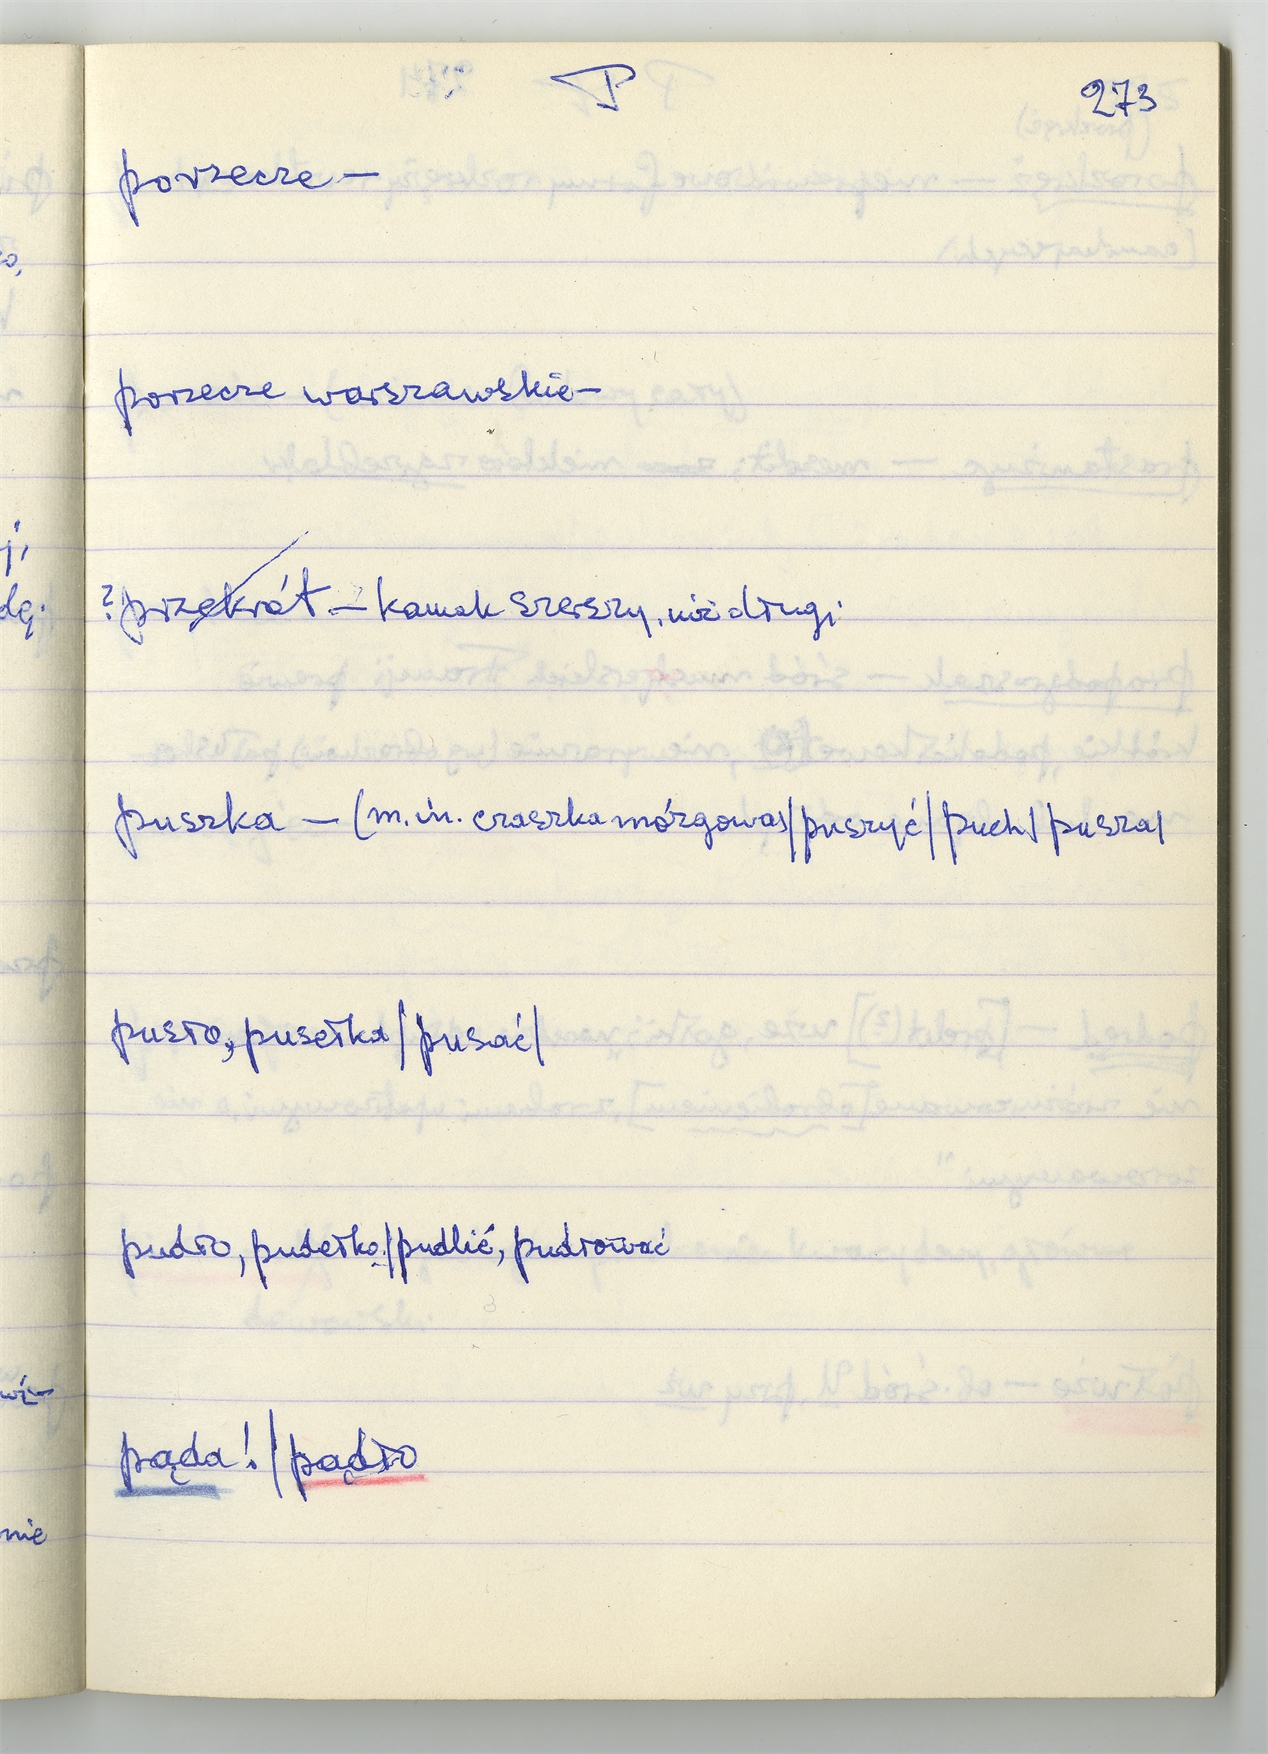 P 273
porzecze –
porzecze warszawskie –
? przekrát – kamak szerszy, niż drugi
puszka – (m. in. czaszka mózgowa) | puszyć | puch | pusza |
pusło, pusełka | pusać |
pudło, pudełko | pudlić, pudłować
pąda! | pądło